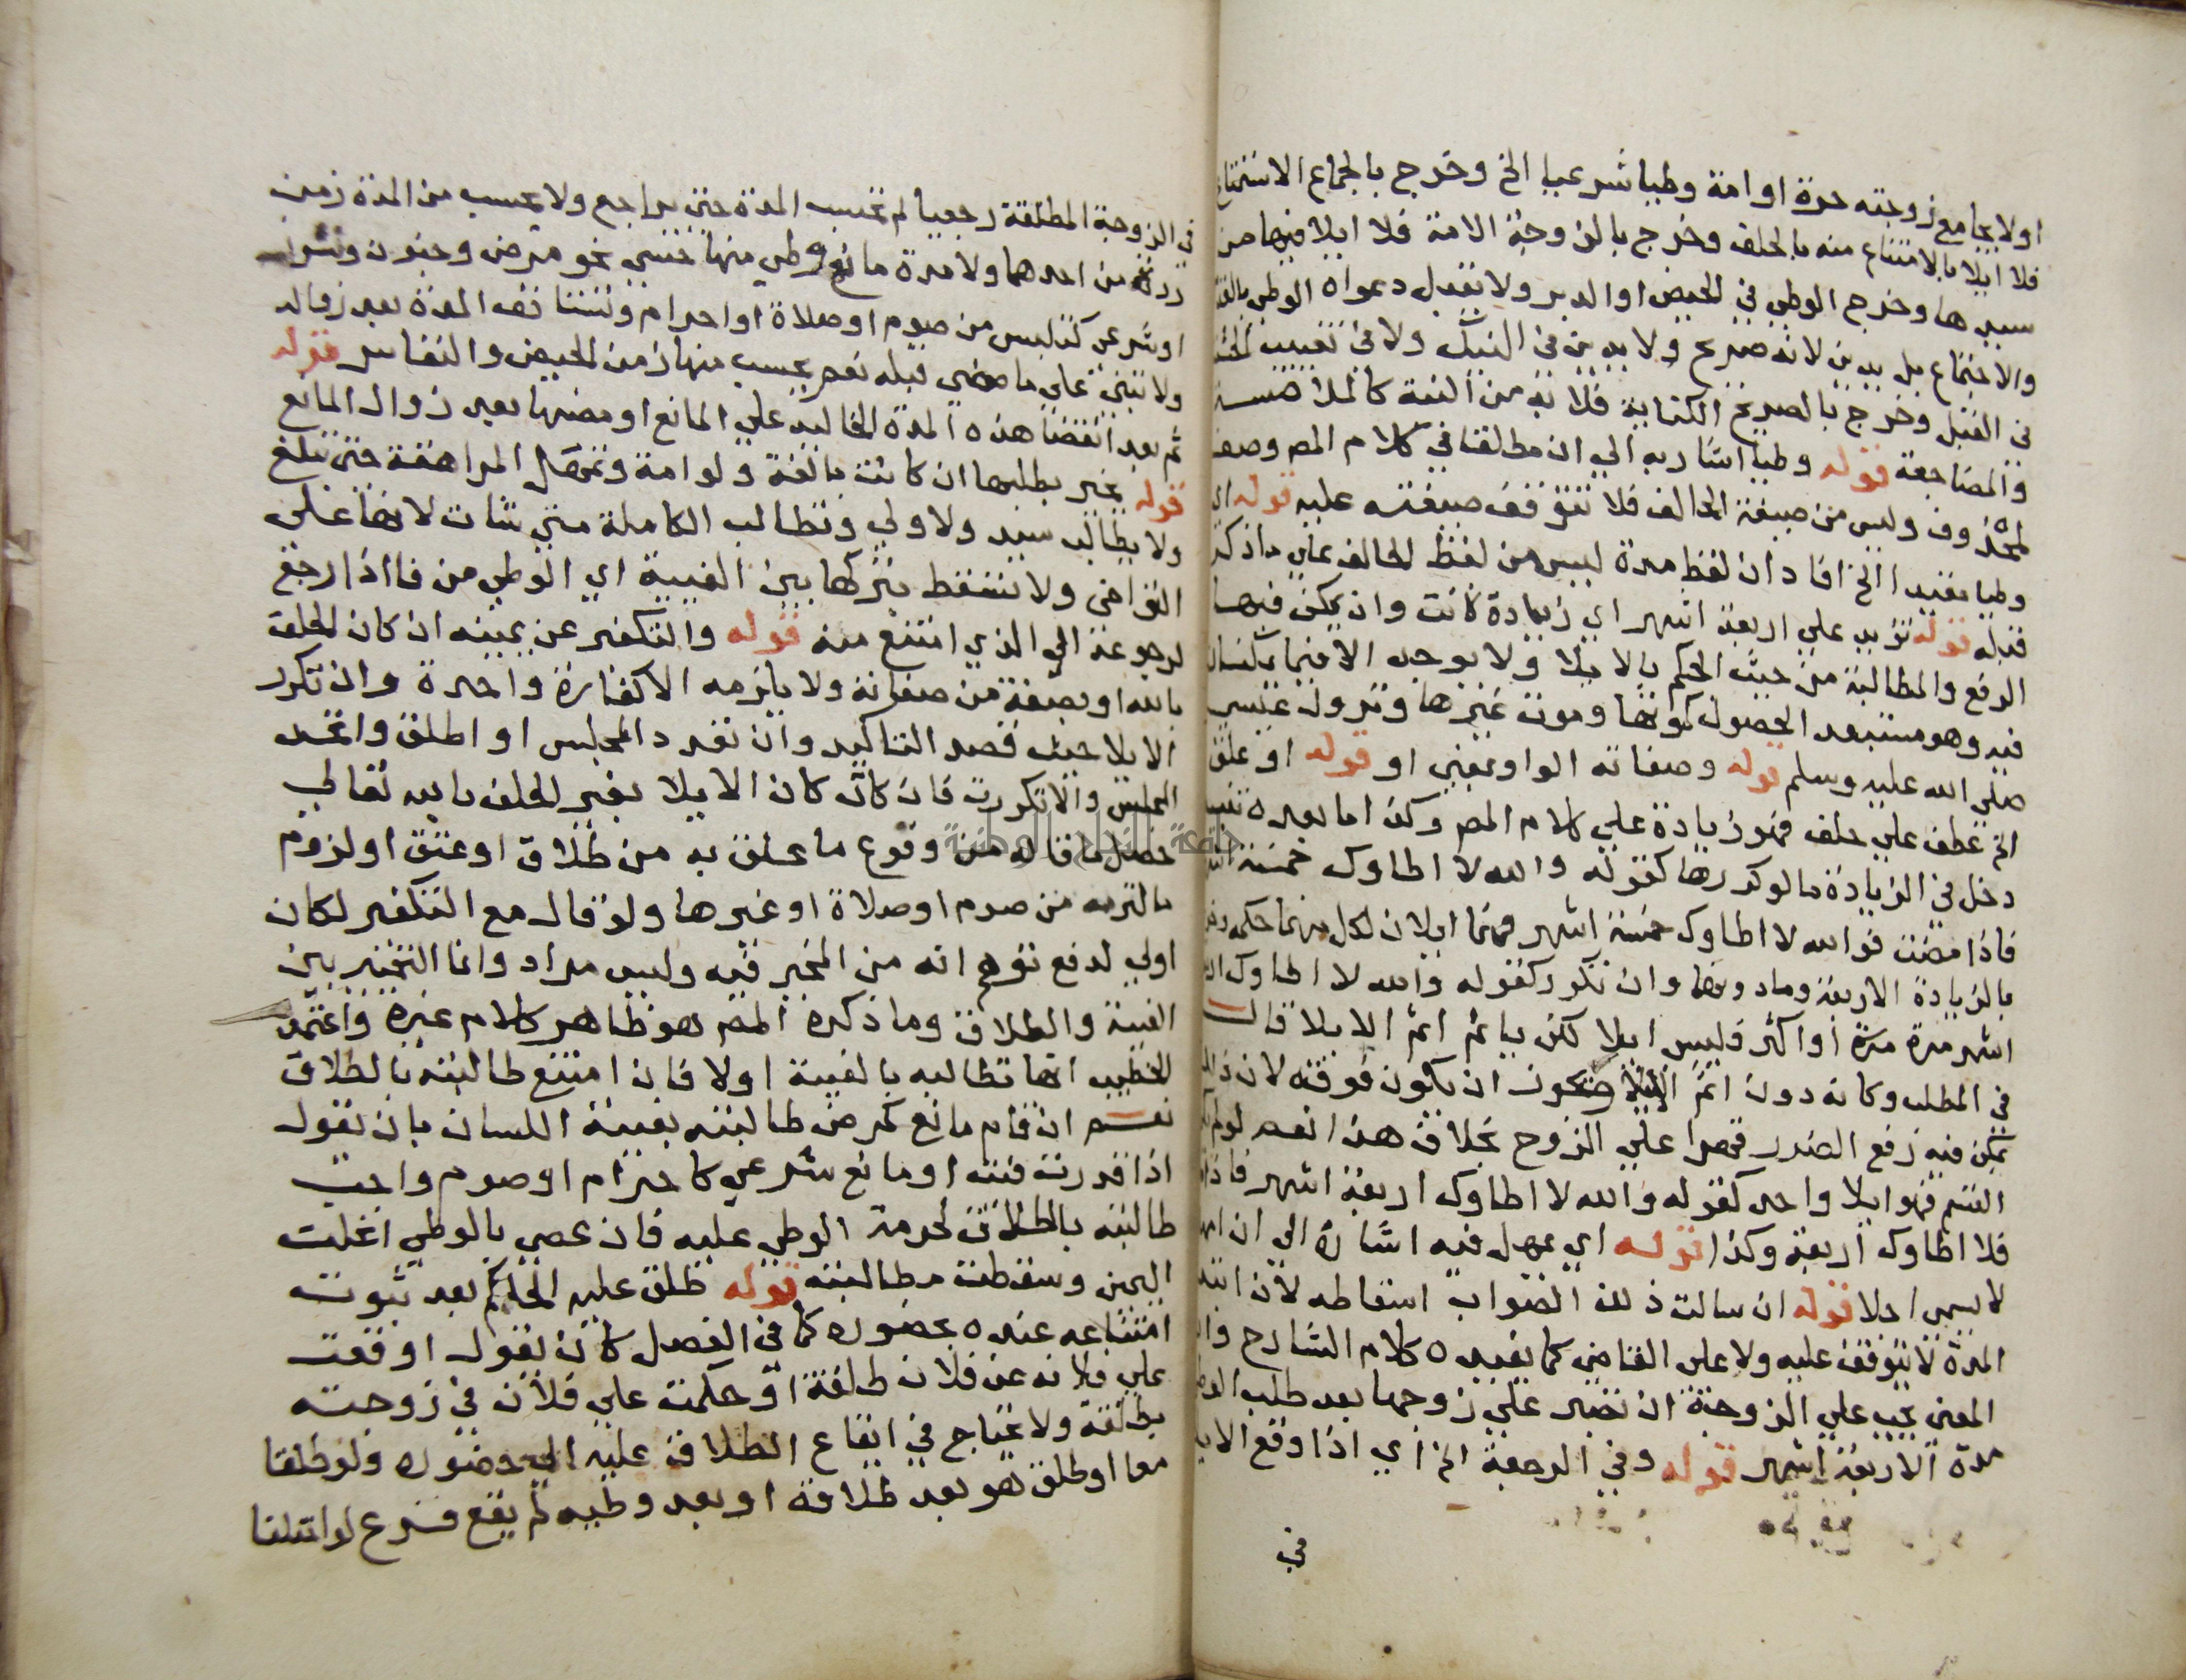 او لا يجامع زوجته حرة او امة وطيا شرعيا الخ وخرج بالجماع الاستمتاع
فلا ايلا بالامتناع منه بالحلف وخرج بالزوجة الامة فلا ايلا فيها من
سيدها وخرج الوطي في الحيض او الدبر ولا يقبل دعواه الوطي
والاجتماع بل يدين لانه صريح ولا يدين في النيك ولا في تغييب
في القبل وخرج بالصريح الكناية فلا بد من النية كالملامسة
والمضاجعة قوله وطيا اشار به الي ان مطلقا في كلام المص وصف
لمحذوف وليس من صيغة الحالف فلا تتوقف صيغته عليه قوله
وطيا مقيدا الخ افاد ان لفظ مدة ليس من لفظ الحالف علي ما ذكر
قبله قوله تزيد علي اربعة اشهر اي زيادة كانت وان يمكن فيها
الرفع والمطالبة من حيث الحكم بالايلا ولا يوجد الا فيما
فيه وهو مستبعد الحصول كموتها وموت غيرها ونزول عيسي
صلي الله عليه وسلم قوله وصفاته الواو بمعني او قوله او علق
الخ عطف علي حلف فهو زيادة علي كلام المص وكذا ما بعده
دخل في الزيادة ما لو كررها كقوله والله لا اطاوك خمسة
فاذا مضت فوالله لا اطاوك خمسة اشهر فهما ايلان لكل منهما حكمه
بالزيادة الاربعة وما دونها وان تكرر كقوله والله لا اطاوك
اشهر مرة مرة او اكثر فليس ايلا لكن ياثم اثم الايلا قال
في المطلب وكانه دون اثم الايلا ويجوز ان يكون فوقه لان
يمكن فيه رفع الضرر قهرا علي الزوج بخلاف هذا نعم لو
القسم فهو ايلا واحد كقوله والله لا اطاوك اربعة اشهر
فلا اطاوك اربعة وكذا قوله اي يمهل فيه اشارة الي ان
لا يسمي اجلا قوله ان سالت ذلك الصواب اسقاطه لان
المدة لا تتوقف عليه ولا علي القاضي كما يفيده كلام الشارح
المعني يجب علي الزوجة ان تصبر علي زوجها بعد طلب
مدة الاربعة اشهر قوله وفي الرجعية الخ اي اذا وقع
في
في الزوجة المطلقة رجعيا لم تحسب المدة حتي يراجع ولا يحسب من المدة زمن
ردة من احدهما ولا مدة مانع وطي منها حسي نحو مرض وجنون ونشوز
او شرعي كتلبس من صوم او صلاة او احرام وتستانف المدة بعد زواله
ولا تبني علي ما مضي قبله نعم يحسب منها زمن الحيض والنفاس قوله
ثم بعد انقضا هذه المدة الخالية علي المانع او مضيها بعد زوال المانع
قوله يخير بطلبها ان كانت بالغة ولو امة وتمهل المراهقة حتي تبلغ
ولا يطالب سيد ولا ولي وتطالب الكاملة متي شات لانها علي
التراخي ولا تسقط بتركها بين الفيية اي الوطي من فا اذا رجع
لرجوعه الي الذي امتنع منه قوله والتكفير عن يمينه ان كان الحلف
بالله او بصفة من صفاته ولا يلزمه الا كفارة واحدة وان تكرر
الايلا حيث قصد التاكيد وان تعدد المجلس او اطلق واتحد
المجلس والا تكررت فان كان الايلا بغير الحلف بالله تعالي
حصل ما قاله من وقوع ما علق به من طلاق او عتق او لزوم
ما التزمه من صوم او صلاة او غيرها ولو قال مع التكفير لكان
اولي لدفع توهم انه من المخير فيه وليس مراد وانما التخيير بين
الفيية والطلاق وما ذكره المص هو ظاهر كلام غيره واعتمد
الخطيب انها تطالبه بالفيية اولا فان امتنع طالبته بالطلاق
نعم ان قام مانع كمرض طالبته بفيئة اللسان بان يقول
اذا قدرت فئت او مانع شرعي كاحرام او صوم واجب
طالبته بالطلاق لحرمة الوطي عليه فان عصي بالوطي انحلت
اليمين وسقطت مطالبته قوله طلق عليه الحاكم بعد ثبوت
امتناعه عنده بحضوره كما في الفصل كان يقول اوقعت
علي فلانه عن فلان طلقة او حكمت علي فلان في زوجته
بطلقة ولا يحتاج في ايقاع الطلاق عليه الي حضوره ولو طلقا
معا او طلق هو بعد طلاقه او بعد وطيه لم يقع فرع لو اختلفا
جامعة النجاح الوطنية